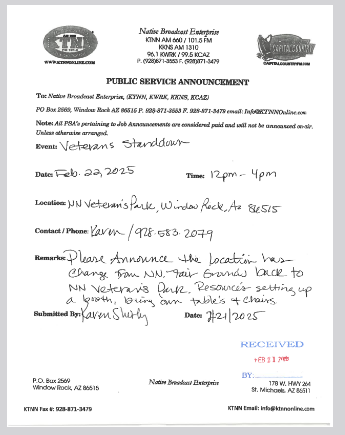 Native Broadcast Enterprise
KTNN AM 660 / 101.5 FM
KKNS AM 1310
96.1 KWRK / 99.5 KCAZ
P. (928)871-3553 F. (928)871-3479
KTNN
WWW.KTNNONLINE.COM
CAPITAL COUNTRY
CAPITALCOUNTRYFM.COM
PUBLIC SERVICE ANNOUNCEMENT
To: Native Broadcast Enterprise, (KTNN, KWRK, KKNS, KCAZ)
PO Box 2569, Window Rock, AZ 86515 P. 928-871-3553 F. 928-871-3479 email: Info@KTNNOnline.com
Note: All PSA's pertaining to Job Announcements are considered paid and will not be announced on-air.
Unless otherwise arranged.
Event: Veterans Standdown
Date: Feb. 22, 2025 Time: 12pm - 4pm
Location: NN Veteran's Park, Window Rock, AZ 86515
Contact / Phone: Karen / 928.583.2079
Remarks: Please Announce the location has
change from NN. Fair Grounds back to
NN Veteran's Park. Resources setting up
a booth, bring own table's & chairs
Submitted By: Karen Date: 2/21/2025
RECEIVED
FEB 2025
BY:
P.O. Box 2569 Native Broadcast Enterprise 178 W. HWY 264
Window Rock, AZ 86515 St. Michaels, AZ 86511
KTNN Fax #: 928-871-3479 KTNN Email: info@ktnnonline.com